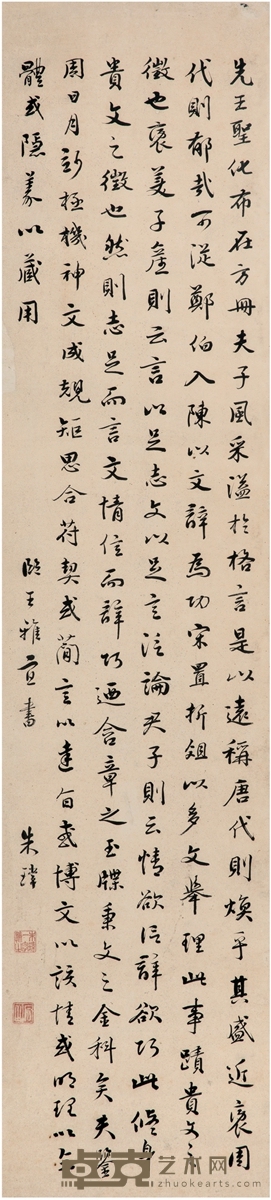 先王聖化布在方冊夫子風采溢於格言是以遠稱唐代則煥乎其盛近褒周
代則郁哉可從鄭伯入陳以文辭為功宋置折俎以多文舉理此事蹟貴文之
徵也褒美子產則云言以足志文以足言泛論君子則云情欲信辭欲巧此修身
貴文之徵也然則志足而言文情信而辭巧迺含章之玉牒秉文之金科矣夫鑒
周日月妙極機神文成規矩思合苻契或簡言以達旨或博文以該情或明理以立
體或隱義以藏用
臨王雅宜書
朱
艺术网
zhuokearts.com